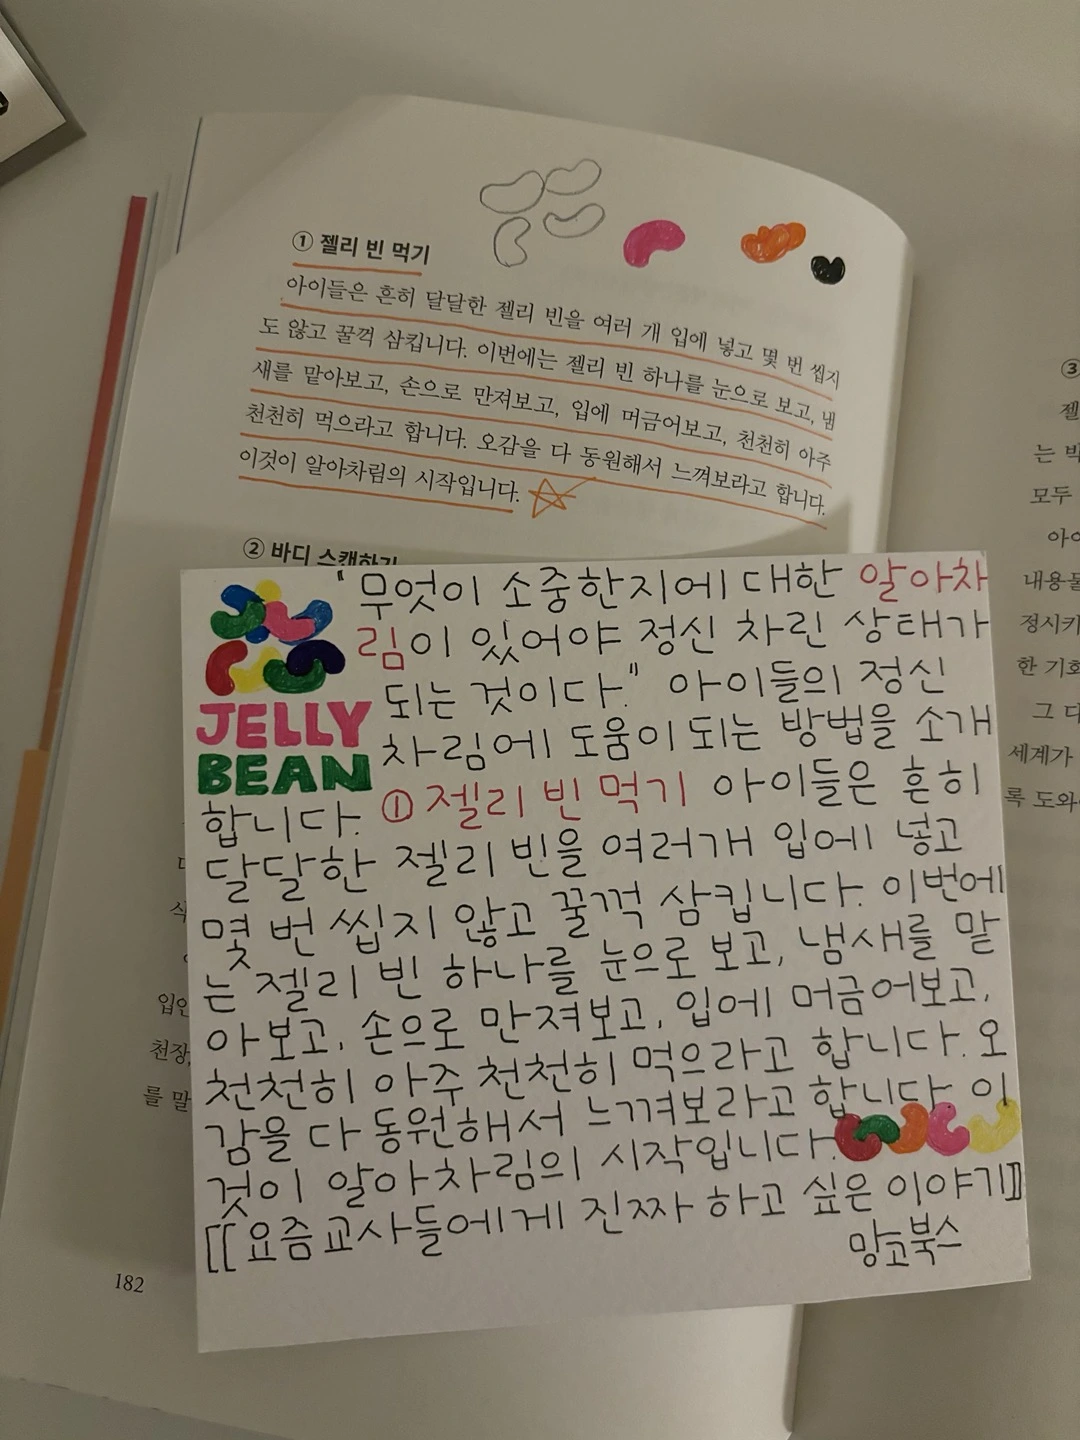 ① 젤리 빈 먹기
아이들은 흔히 달달한 젤리 빈을 여러 개 입에 넣고 몇 번 씹지
도 않고 꿀꺽 삼킵니다. 이번에는 젤리 빈 하나를 눈으로 보고, 냄
새를 맡아보고, 손으로 만져보고, 입에 머금어보고, 천천히 아주
천천히 먹으라고 합니다. 오감을 다 동원해서 느껴보라고 합니다.
이것이 알아차림의 시작입니다.
② 바디 스캔하기
"무엇이 소중한지에 대한 알아차
림이 있어야 정신 차린 상태가
되는 것이다." 아이들의 정신
차림에 도움이 되는 방법을 소개
JELLY
BEAN
합니다. ① 젤리 빈 먹기 아이들은 흔히
달달한 젤리 빈을 여러개 입에 넣고
몇 번 씹지 않고 꿀꺽 삼킵니다. 이번에
는 젤리 빈 하나를 눈으로 보고, 냄새를 맡
아보고, 손으로 만져보고, 입에 머금어보고,
천천히 아주 천천히 먹으라고 합니다. 오
감을 다 동원해서 느껴보라고 합니다. 이
것이 알아차림의 시작입니다.
[[요즘교사들에게 진짜 하고 싶은 이야기]]
망고북스
입안
천장,
를 말
182
③
젤
는 박
모두
아이
내용물
정시키
한 기회
그 다
세계가
록 도와